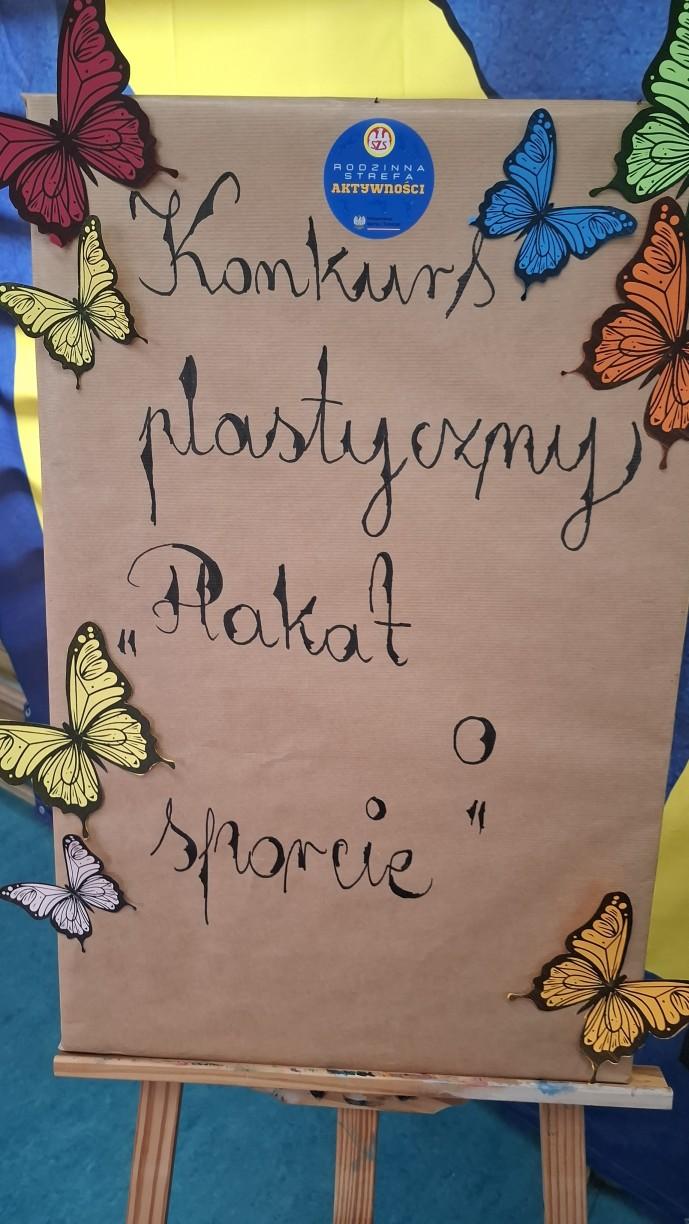 SZS
RODZINNA
STREFA
AKTYWNOŚCI
Konkurs
plastyczny
„Plakat
o
sporcie"